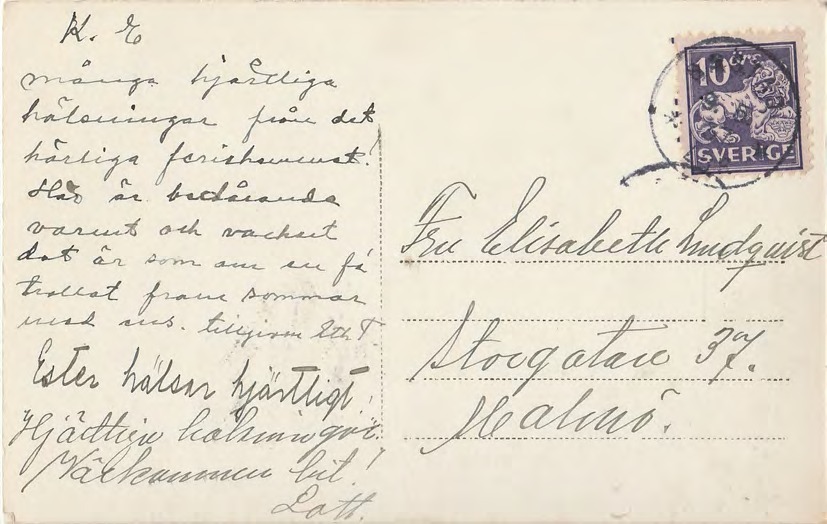 K. E
många hjärtliga
hälsningar från det
härliga
Här är bedårande
varmt och vackert
det är som om en få
trollat fram sommar
med ens. tillgivna
Ester hälsar hjärtligt!
"Hjärtliga hälsningar".
Välkommen hit!
Lott.
10 öre
SVERIGE
Fru Elisabeth Lundquist
Storgatan 37.
Malmö.